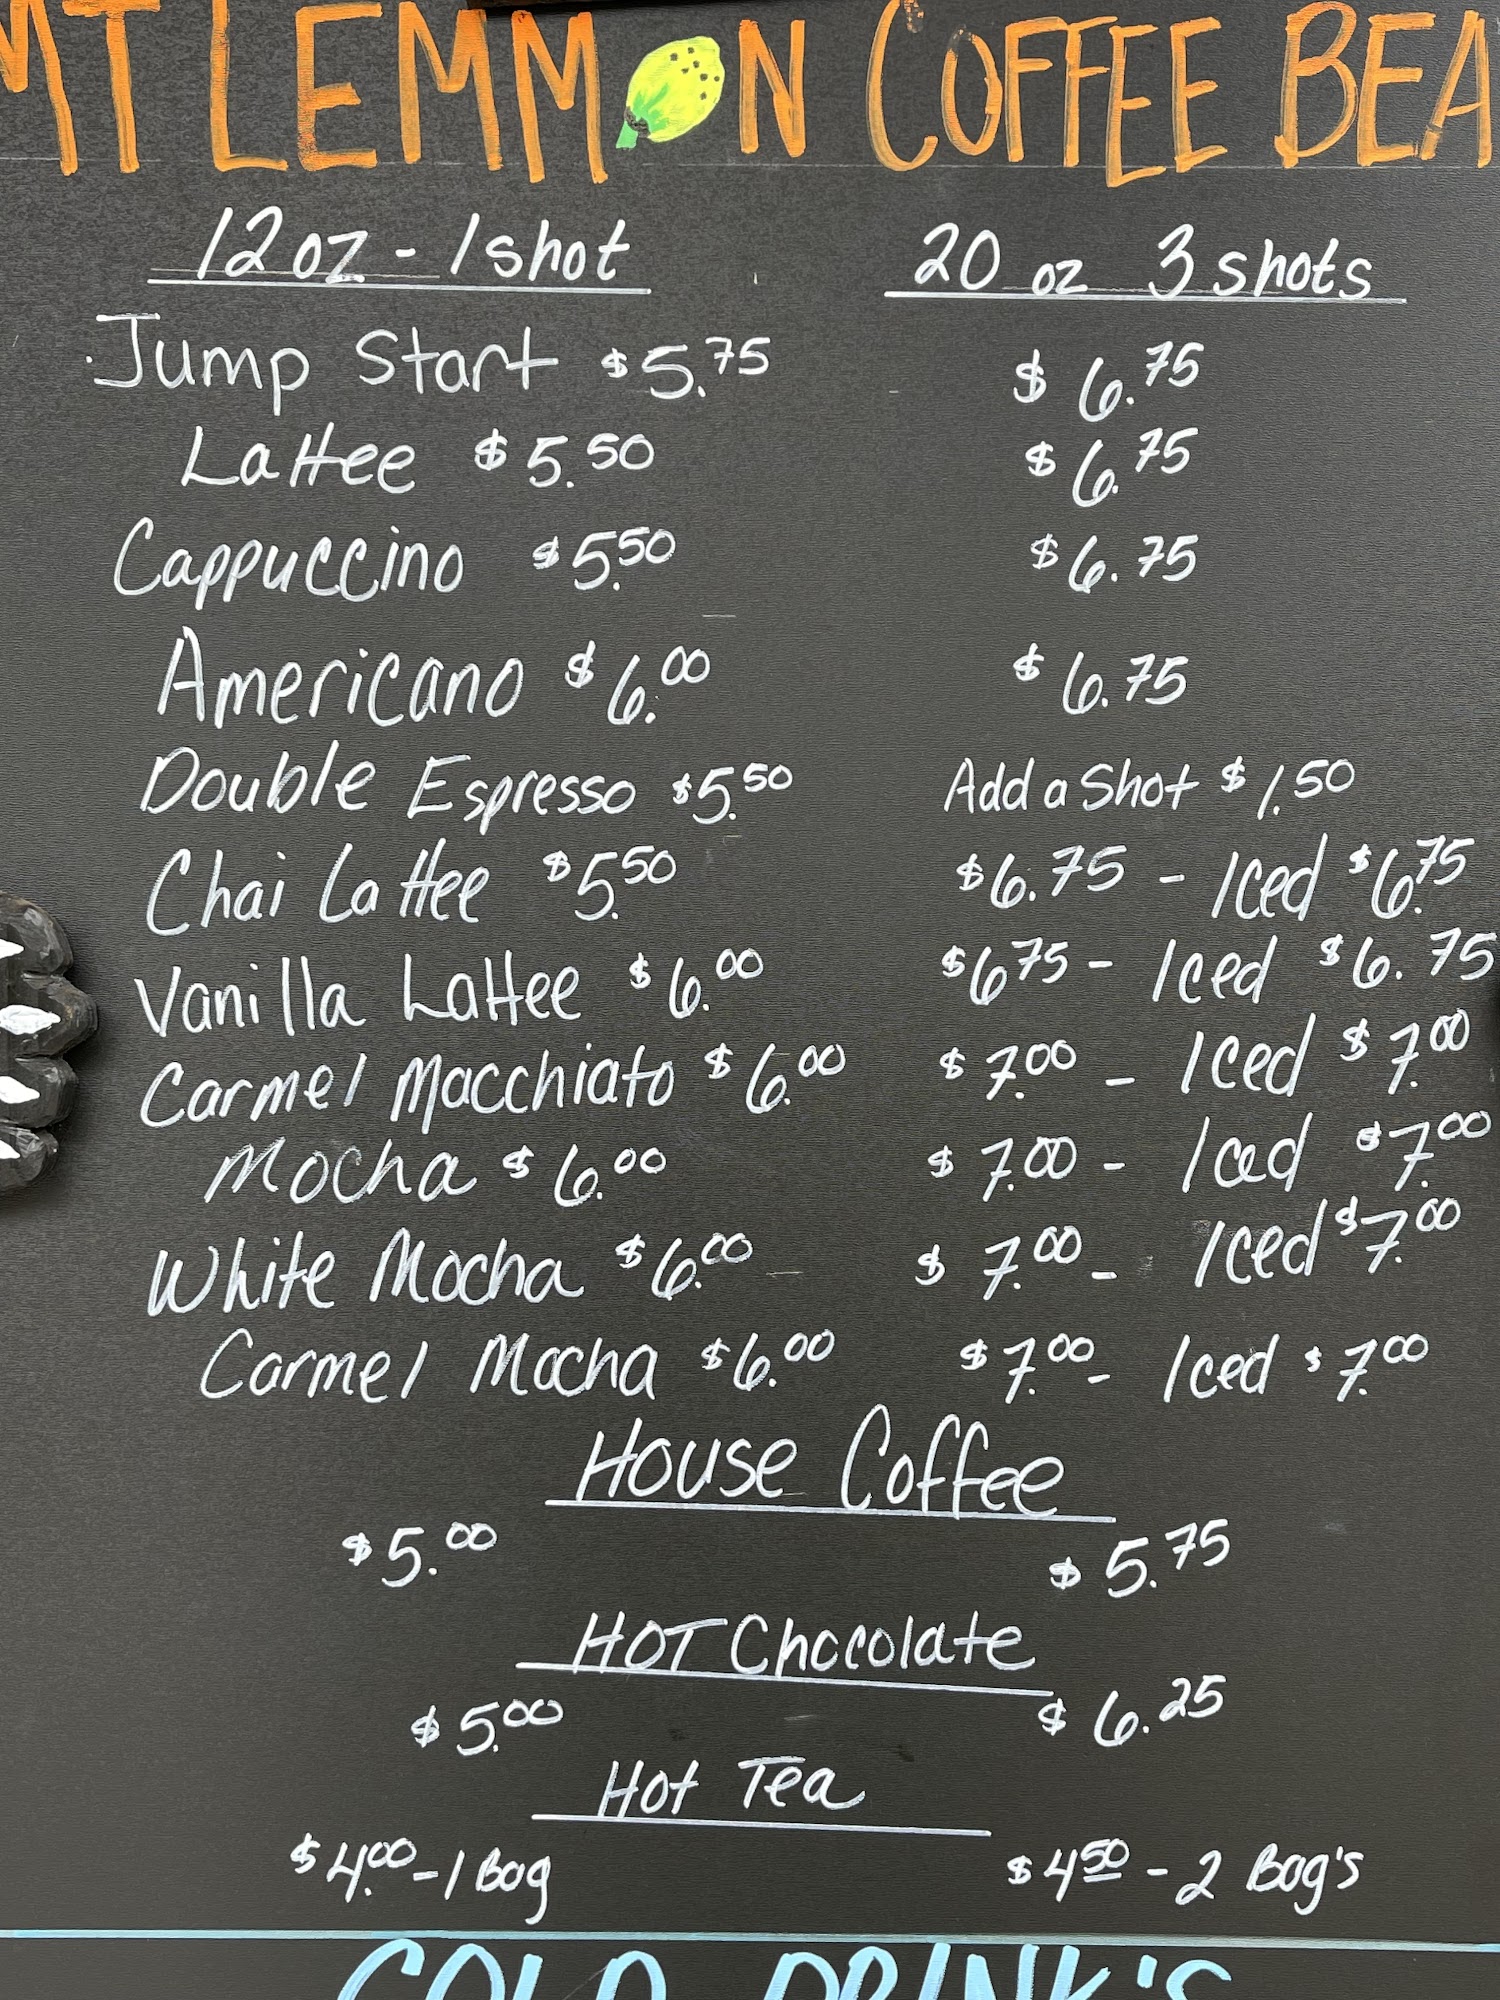 MT LEMMON COFFEE BEA
12 oz - 1 shot 20 oz 3 shots
Jump Start $5.75 $6.75
Lattee $5.50 $6.75
Cappuccino $5.50 $6.75
Americano $6.00 $6.75
Double Espresso $5.50 Add a Shot $1.50
Chai Lattee $5.50 $6.75 - Iced $6.75
Vanilla Lattee $6.00 $6.75 - Iced $6.75
Carmel Macchiato $6.00 $7.00 - Iced $7.00
Mocha $6.00 $7.00 - Iced $7.00
White Mocha $6.00 $7.00 - Iced $7.00
Carmel Mocha $6.00 $7.00 - Iced $7.00
House Coffee
$5.00 $5.75
HOT Chocolate
$5.00 $6.25
Hot Tea
$4.00 - 1 Bag $4.50 - 2 Bag's
COLD DRINK'S